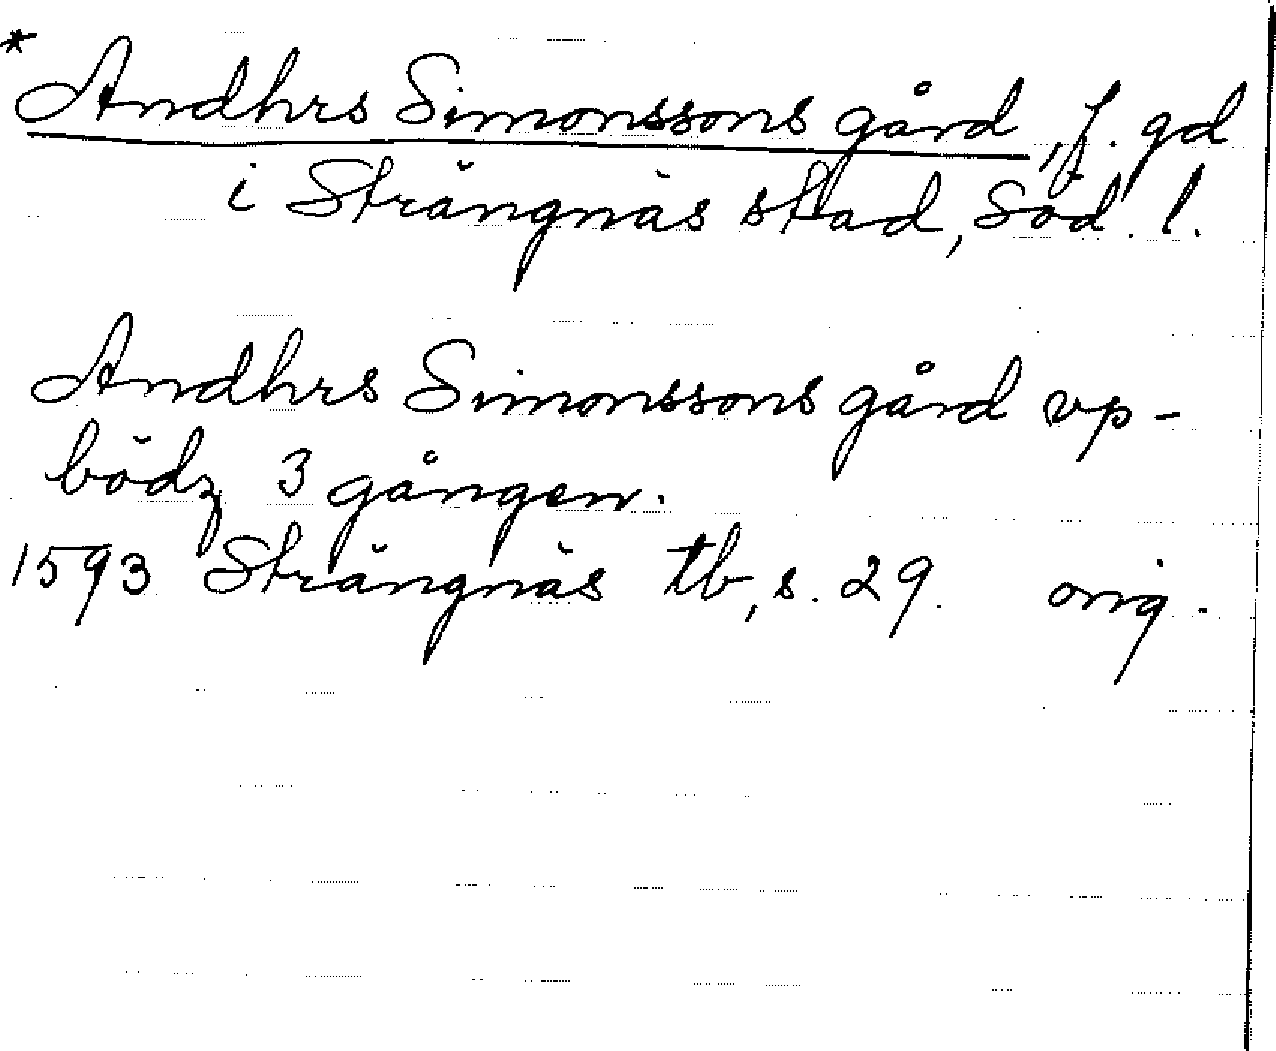 * Andhrs Simonssons gård, f. gd
i Strängnäs stad, Söd. l.
Andhrs Simonssons gård vp-
bödz 3 gången.
1593 Strängnäs tb, s. 29. orig.